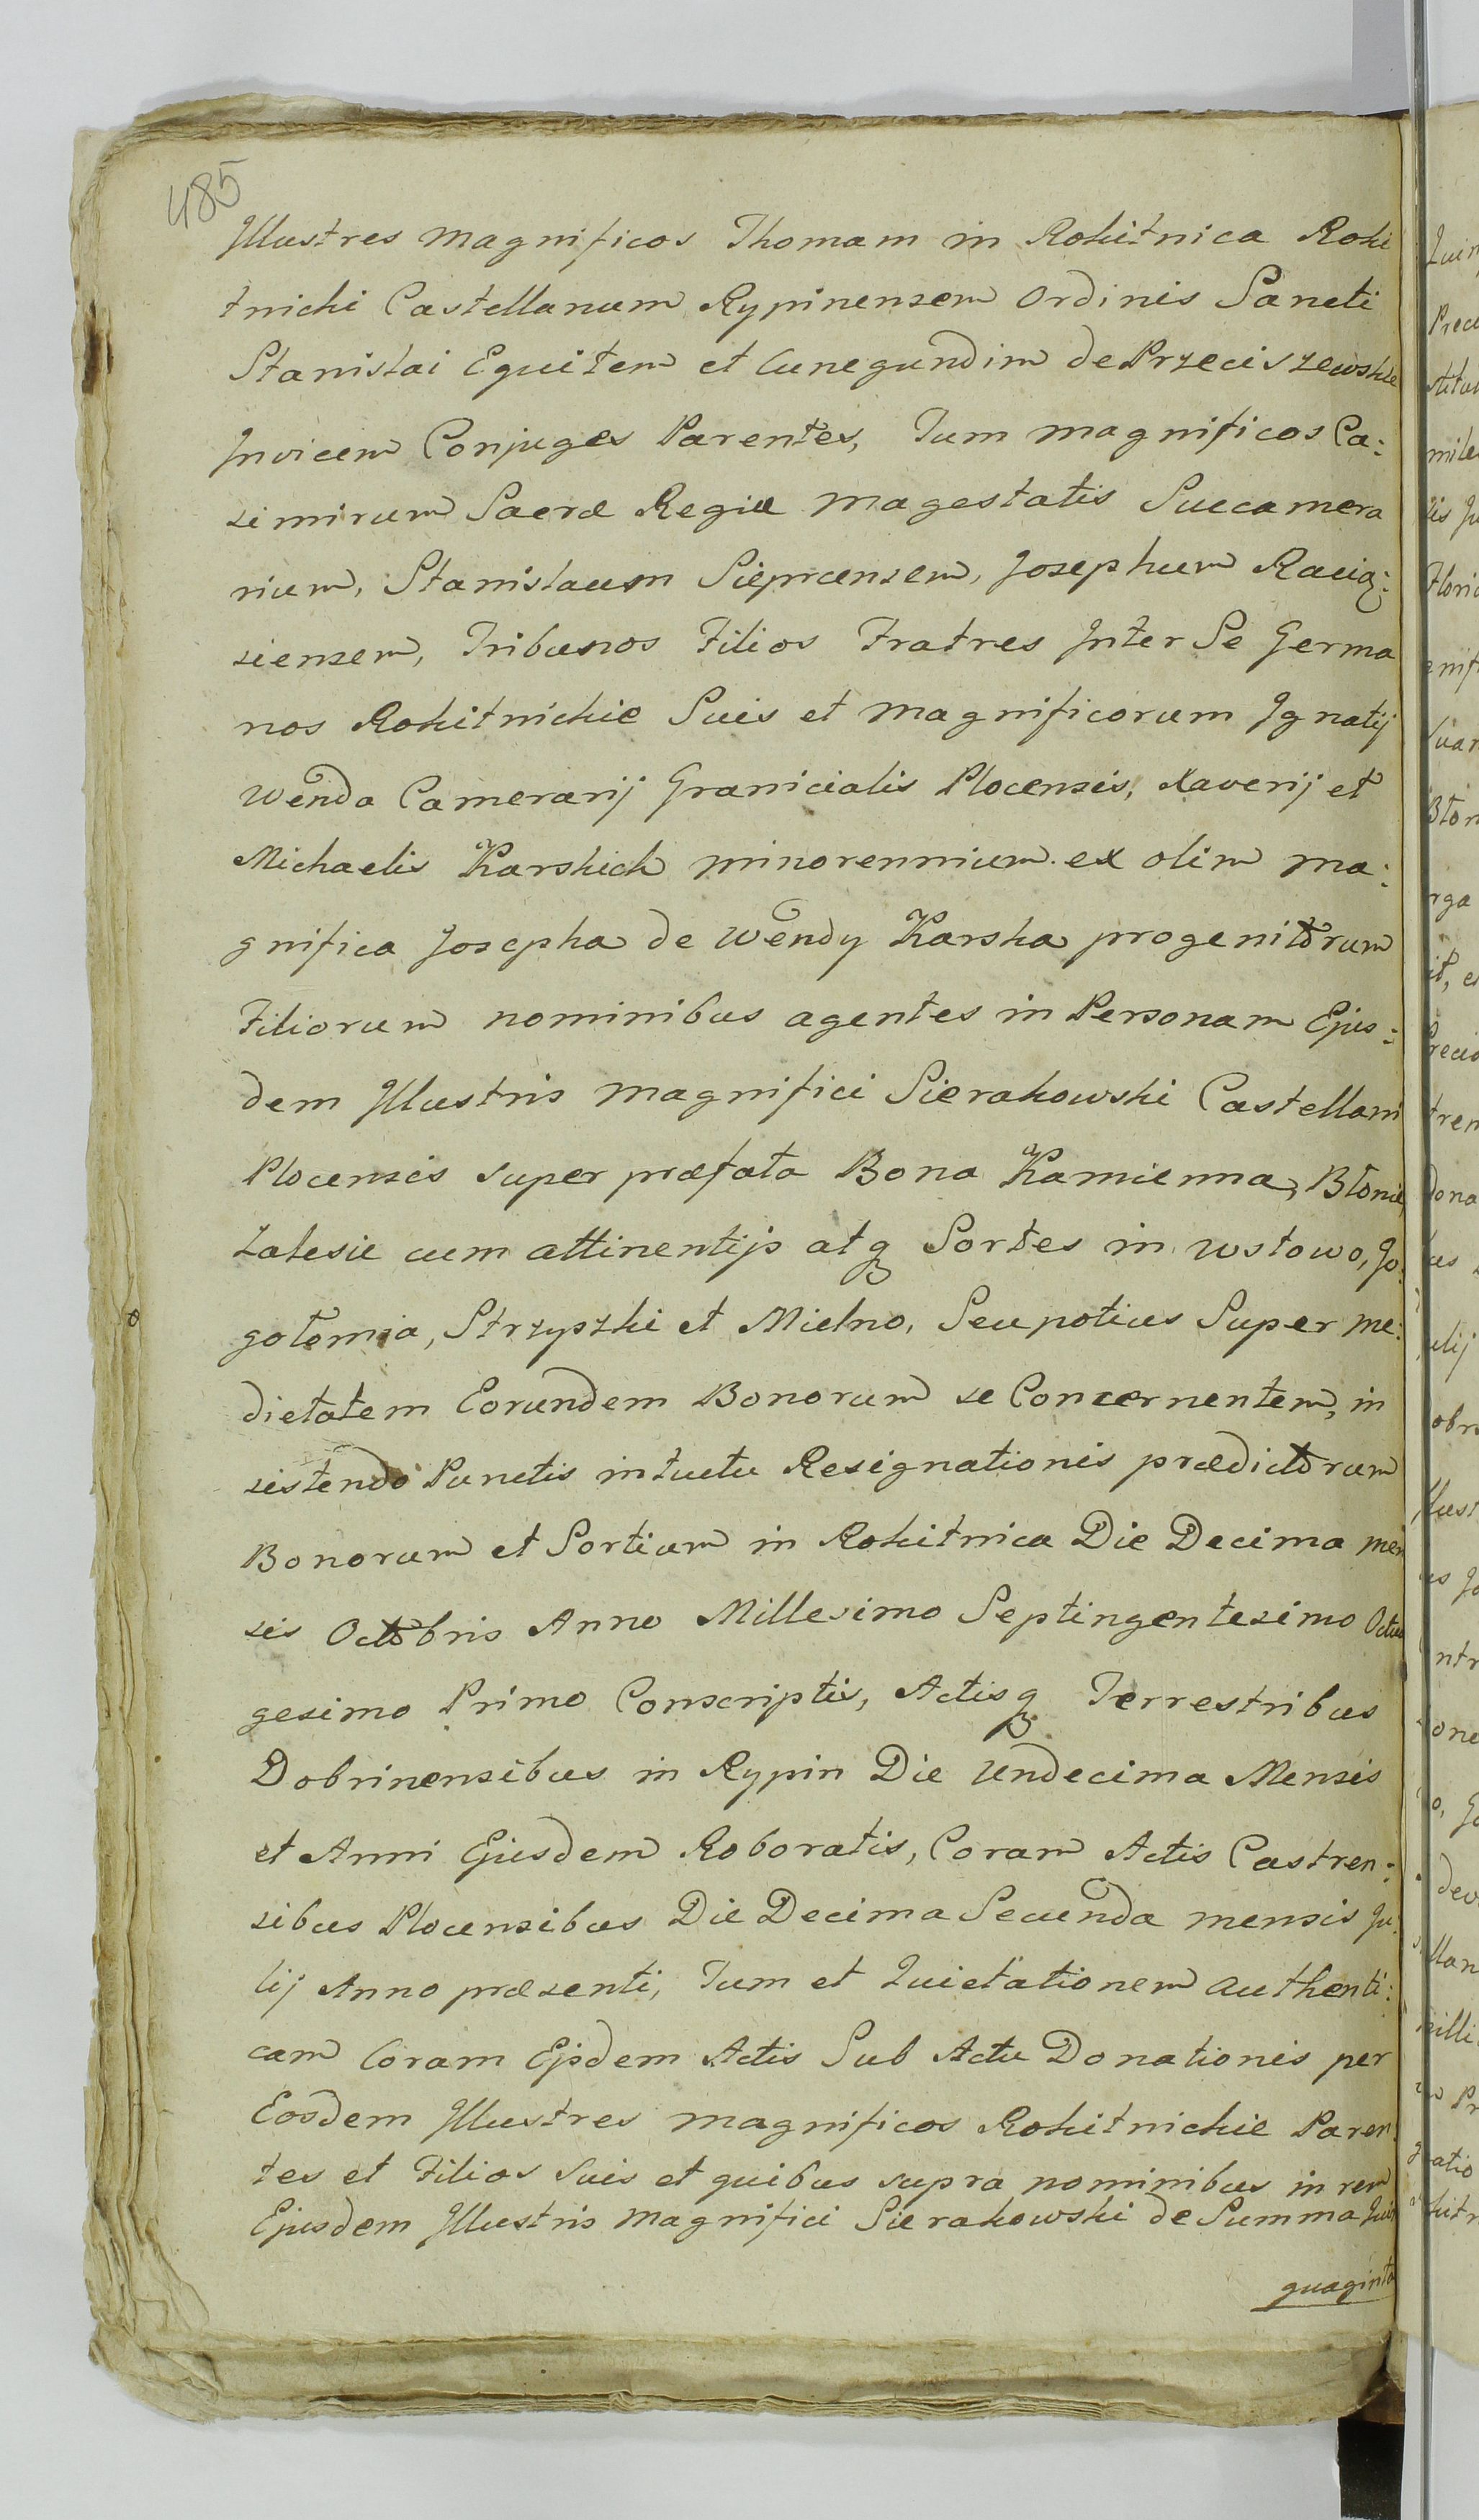 485
Illustres Magnificos Thomam in Rokitnica Roki
tnicki Castellanum Rypinensem Ordinis Sancti
Stanislai Equitem et Cunegundim de Przeciszewskie
Invicem Conjuges Parentes, Tum Magnificos Ca:
simirum Sacræ Regiæ Magestatis Succamera
rium, Stanislaum Sieprcensem, Josephum Raciąz:
siensem, Tribunos Filios Fratres Inter Se Germa
nos Rokitnickie Suis et Magnificorum Ignatij
Wenda Camerarij Granicialis Plocensis, Xaverij et
Michaelis Karskich minorennium ex olim Ma:
gnifica Josepha de Wendy Karska progenitorum
Filiorum nominibus agentes in Personam Ejus:
dem Illustris Magnifici Sierakowski Castellani
Plocensis super præfata Bona Kamienna, Błonie,
Zalesie cum attinentijs atq Sortes in Wstowo, Go:
gołomia, Strzyszki et Mielno, Seu potius Super Me:
dietatem Eorundem Bonorum se Concernentem, in
sistendo Punctis intuetu Resignationis prædictorum
Bonorum et Sortium in Rokitnica Die Decima Men
sis Octobris Anno Millesimo Septingentesimo Octua
gesimo Primo Conscriptis, Actisq Terrestribus
Dobrinensibus in Rypin Die Undecima Mensis
et Anni Ejusdem Roboratis, Coram Actis Castren:
sibus Plocensibus Die Decima Secunda mensis Ju:
lij Anno præsenti, Tum et Quietationem authenti:
cam Coram Ejsdem Actis Sub Actu Donationis per
Eosdem Illustres Magnificos Rokitnickie Paren:
tes et Filios Suis et quibus supra nominibus in rem
Ejusdem Illustris Magnifici Sierakowski de Summa Quin
quaginta